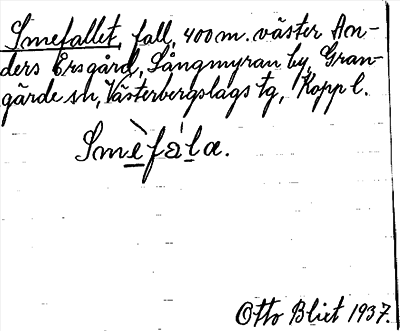 Smefallet, fall, 400 m. väster An-
ders Ersgård, Sångmyran by, Gran-
gärde sn, Västerbergslags tg, Kopp l.
Smè̱fàḻa.
Otto Blixt 1937.